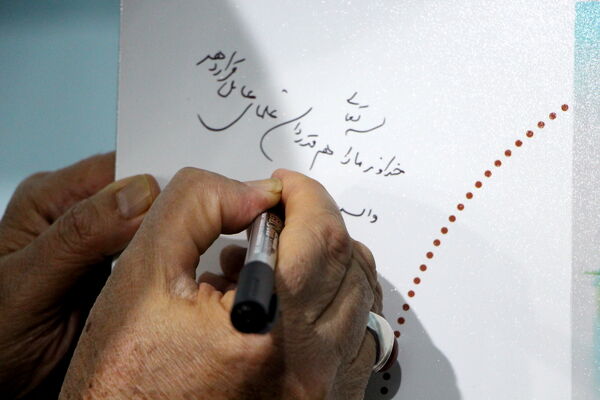 بسمه تعالی
خداوند ما را هم قدردان علمای عامل قرار دهد
والس